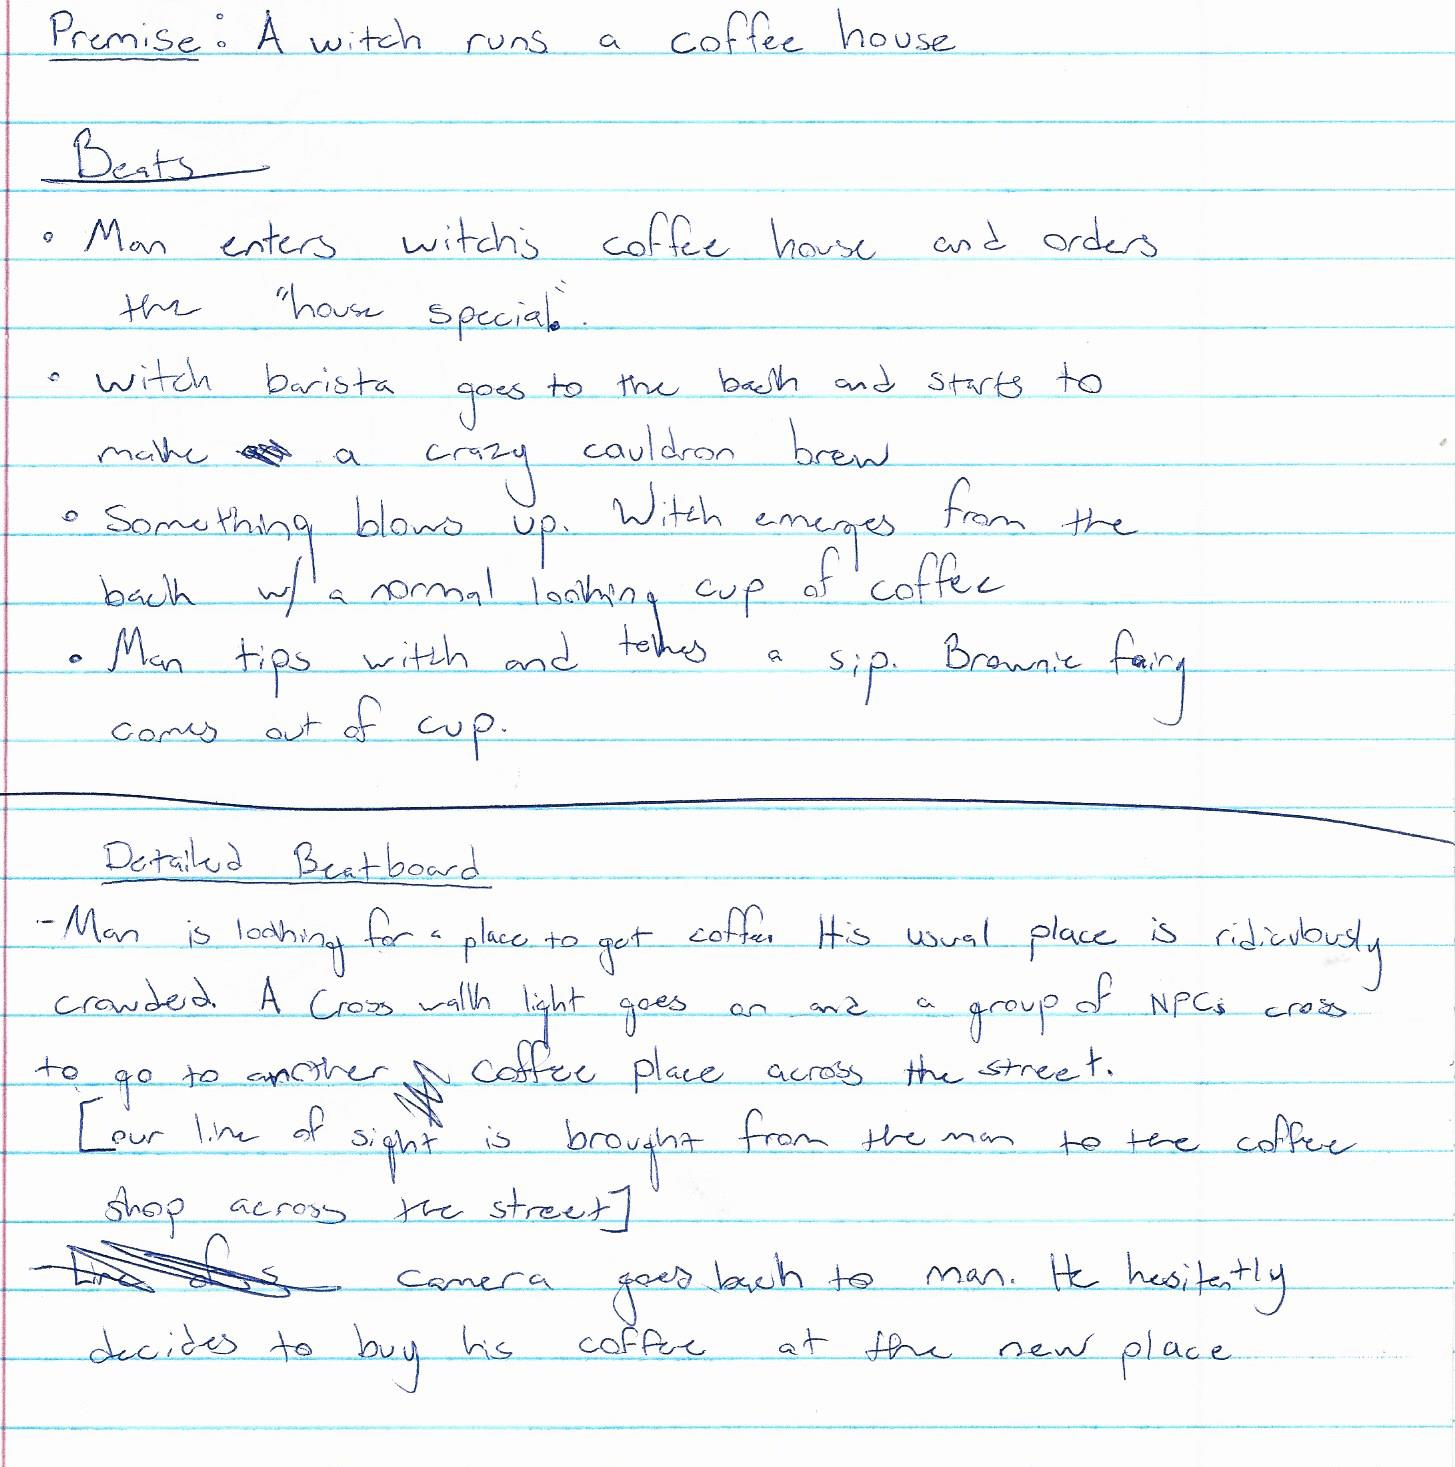 Premise: A witch runs a coffee house
Beats
• Man enters witch's coffee house and orders
the "house special".
• witch barista goes to the back and starts to
make a crazy cauldron brew
• Something blows up. Witch emerges from the
back w/ a normal looking cup of coffee
• Man tips witch and takes a sip. Brownie fairy
comes out of cup.
Detailed Beatboard
- Man is looking for a place to get coffee. His usual place is ridiculously
crowded. A Cross walk light goes on and a group of NPCs cross
to go to another coffee place across the street.
[our line of sight is brought from the man to the coffee
shop across the street]
- camera goes back to man. He hesitently
decides to buy his coffee at the new place